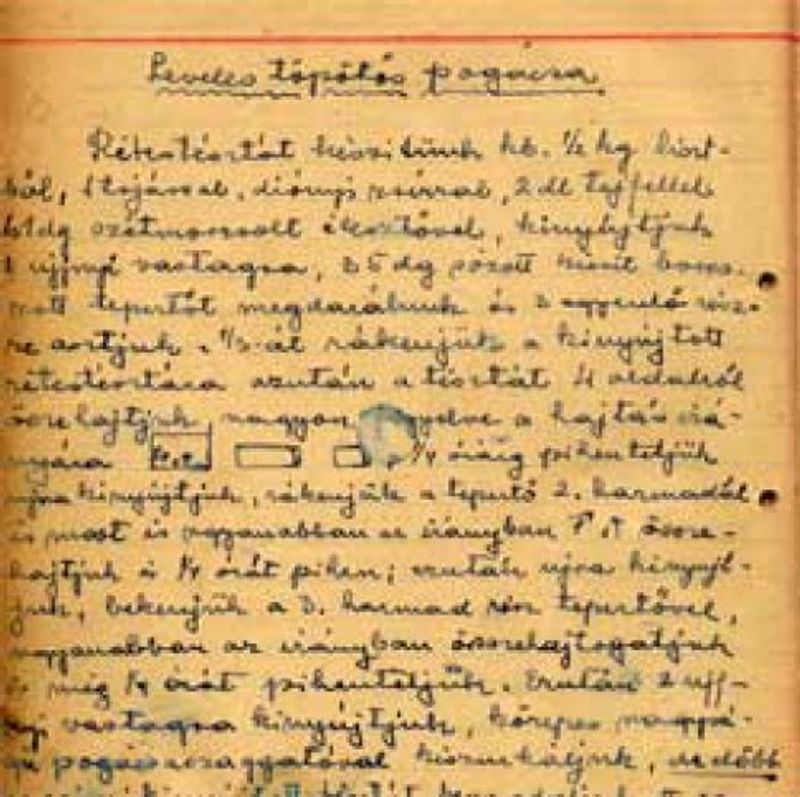 Leveles töpötős pogácsa
Rétestésztát készitünk kb. 1/2 kg liszt-
ből, 1 tojással, diónyi zsírral, 2 dl tejfellel
élesztővel, kinyujtjuk
1 ujjnyi vastagra, 35 dg sózott kissit boros-
zott tepertőt megdarálunk és 3 egyenlő rész-
re osztjuk. 1/3-ál rákenjük a kinyújtott
rétestésztára azután a tésztát 4 oldalról
össze hajtjuk, nagyon a hajtás irá-
nyára 1/4 óráig pihenteljük
ujra kinyújtjuk, rákenjük a tepertő 2. harmadál
és most is ugyanabban az irányban össze-
hajtjuk és 1/4 órát pihen; ezután ujra kinyujt-
juk, bekenjük a 3. harmad rész tepertővel,
ugyanabban az irányban összehajtogatjuk
és még 1/4 órát pihenteljük. Ezután 2 ujj-
nyi vastagra kinyújtjuk, közepes nagysá-
gu pogácsaszaggatóval kiszurkáljuk, de előbb